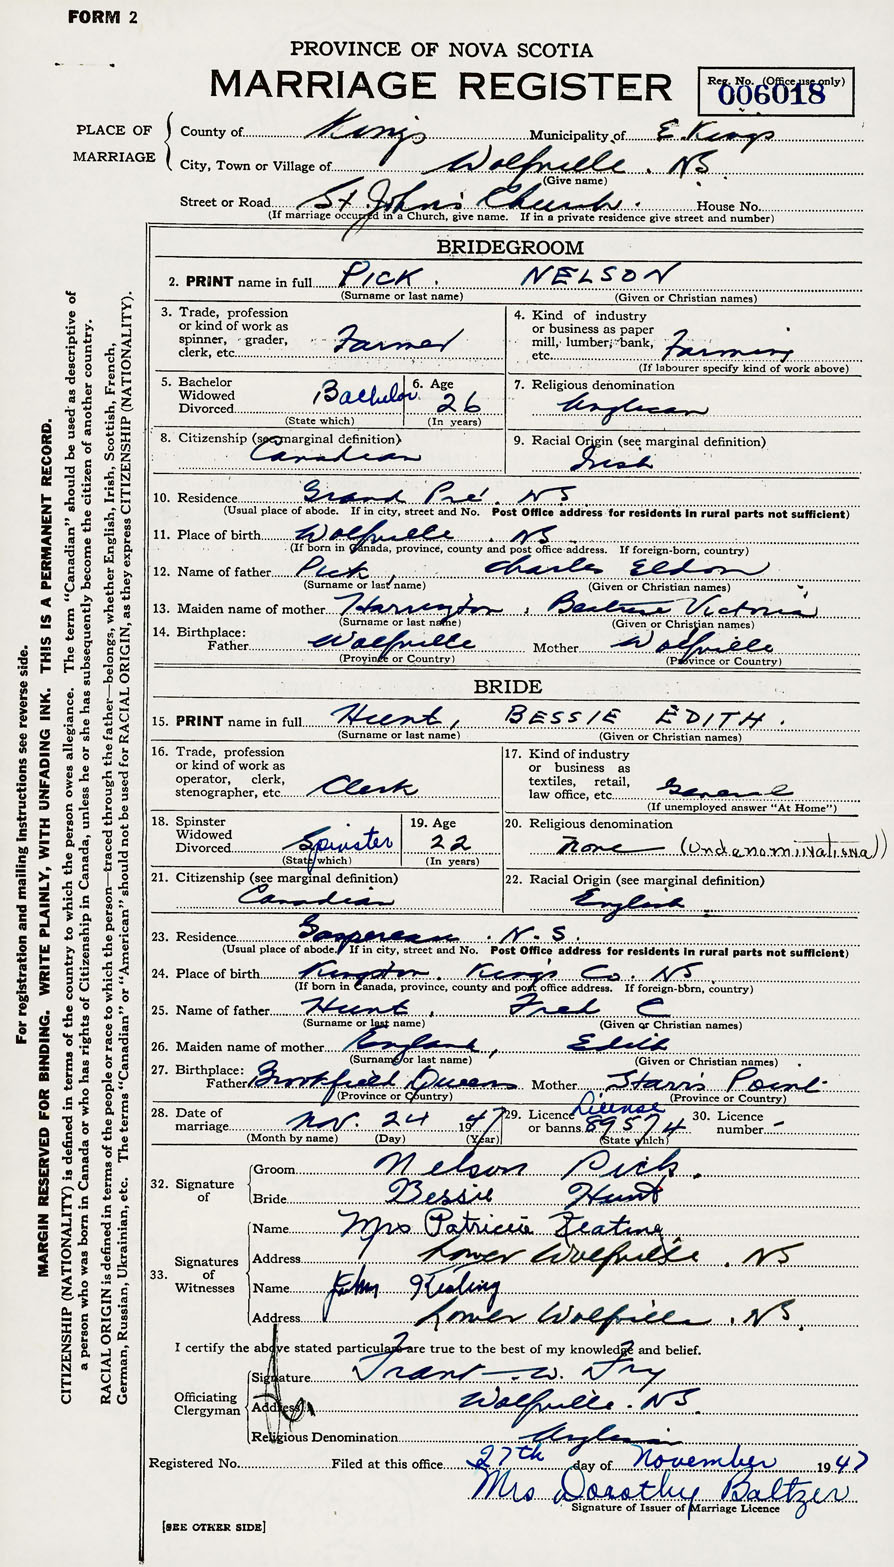 FORM 2
PROVINCE OF NOVA SCOTIA
MARRIAGE REGISTER
Reg. No. (Office use only)
006018
PLACE OF MARRIAGE
County of Kings Municipality of E. Kings
City, Town or Village of Wolfville. NS
(Give name)
Street or Road St John's Church. House No.
(If marriage occurred in a Church, give name. If in a private residence give street and number)
BRIDEGROOM
2. PRINT name in full PICK, NELSON
(Surname or last name) (Given or Christian names)
3. Trade, profession or kind of work as spinner, grader, clerk, etc. Farmer
4. Kind of industry or business as paper mill, lumber, bank, etc. Farming
(If labourer specify kind of work above)
5. Bachelor Widowed Divorced Bachelor
(State which)
6. Age 26
(In years)
7. Religious denomination
Anglican
8. Citizenship (see marginal definition)
Canadian
9. Racial Origin (see marginal definition)
Irish
10. Residence Grand Pré. NS
(Usual place of abode. If in city, street and No. Post Office address for residents in rural parts not sufficient)
11. Place of birth Wolfville. NS.
(If born in Canada, province, county and post office address. If foreign-born, country)
12. Name of father Pick, Charles Eldon
(Surname or last name) (Given or Christian names)
13. Maiden name of mother Harrington, Beatrice Victoria
(Surname or last name) (Given or Christian names)
14. Birthplace:
Father Wolfville Mother Wolfville
(Province or Country) (Province or Country)
BRIDE
15. PRINT name in full Hunt, BESSIE EDITH.
(Surname or last name) (Given or Christian names)
16. Trade, profession or kind of work as operator, clerk, stenographer, etc. Clerk
17. Kind of industry or business as textiles, retail, law office, etc. General
(If unemployed answer "At Home")
18. Spinster Widowed Divorced Spinster
(State which)
19. Age 22
(In years)
20. Religious denomination
None (Undenominational)
21. Citizenship (see marginal definition)
Canadian
22. Racial Origin (see marginal definition)
English
23. Residence Gaspereau. N.S.
(Usual place of abode. If in city, street and No. Post Office address for residents in rural parts not sufficient)
24. Place of birth Kingston. Kings Co. NS
(If born in Canada, province, county and post office address. If foreign-born, country)
25. Name of father Hunt, Fred C
(Surname or last name) (Given or Christian names)
26. Maiden name of mother England, Edith
(Surname or last name) (Given or Christian names)
27. Birthplace:
Father Brookfield Queens Mother Starrs Point
(Province or Country) (Province or Country)
28. Date of marriage Nov. 24 1947
(Month by name) (Day) (Year)
29. Licence or banns License 89574
(State which)
30. Licence number -
32. Signature of
Groom Nelson Pick.
Bride Bessie Hunt
33. Signatures of Witnesses
Name Mrs Patricia Keating
Address Lower Wolfville. NS
Name Keating
Address Lower Wolfville. NS.
I certify the above stated particulars are true to the best of my knowledge and belief.
Officiating Clergyman
Signature W. Fry
Address Wolfville. NS.
Religious Denomination Anglican
Registered No. Filed at this office 27th day of November 1947
Mrs Dorothy Baltzer
Signature of Issuer of Marriage Licence
[SEE OTHER SIDE]
For registration and mailing instructions see reverse side.
MARGIN RESERVED FOR BINDING. WRITE PLAINLY, WITH UNFADING INK. THIS IS A PERMANENT RECORD.
CITIZENSHIP (NATIONALITY) is defined in terms of the country to which the person owes allegiance. The term "Canadian" should be used as descriptive of
a person who was born in Canada or who has rights of Citizenship in Canada, unless he or she has subsequently become the citizen of another country.
RACIAL ORIGIN is defined in terms of the people or race to which the person—traced through the father—belongs, whether English, Irish, Scottish, French,
German, Russian, Ukrainian, etc. The terms "Canadian" or "American" should not be used for RACIAL ORIGIN, as they express CITIZENSHIP (NATIONALITY).